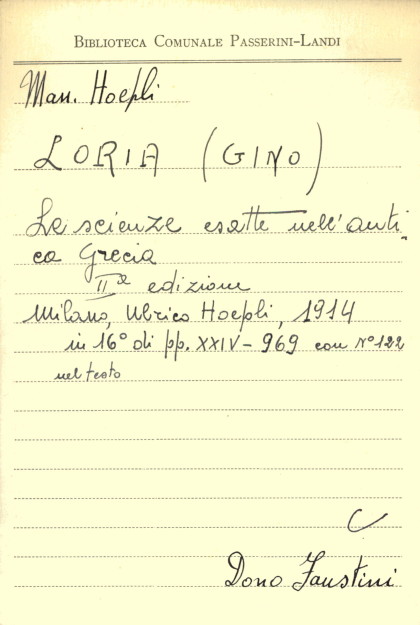 BIBLIOTECA COMUNALE PASSERINI-LANDI
Man. Hoepli
LORIA (GINO)
Le scienze esatte nell'anti-
ca Grecia
IIª edizione
Milano, Ulrico Hoepli, 1914
in 16° di pp. XXIV-969 con N° 122
nel testo
C
Dono Faustini